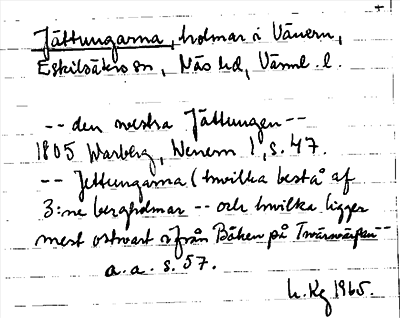 Jättungarna, holmar i Vänern,
Eskilsäters sn, Näs hd, Värml. l.
-- den westra Jättungen --
1805 Warberg, Wenern 1, s. 47.
-- Jettungarna (hwilka bestå af
3:ne bergholmar -- och hwilka ligger
mest ostwart ifrån Båken på --
a. a. s. 57.
h. Kg 1965.